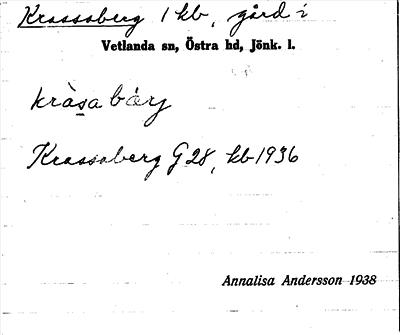 Krassaberg 1 kb, gård i
Vetlanda sn, Östra hd, Jönk. l.
kràsabærj
Krassaberg G28, kb 1936
Annalisa Andersson 1938